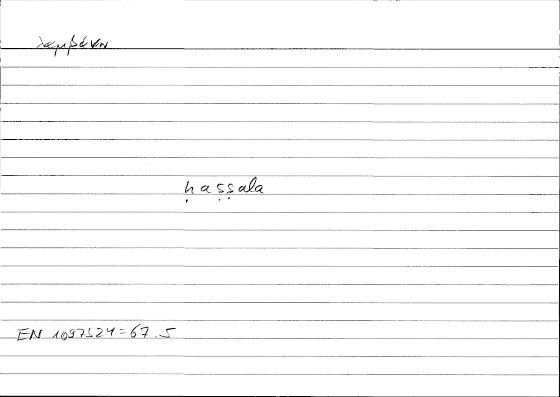 λαμβάνω
ḥaṣṣala
EN 1097b24 = 67.5